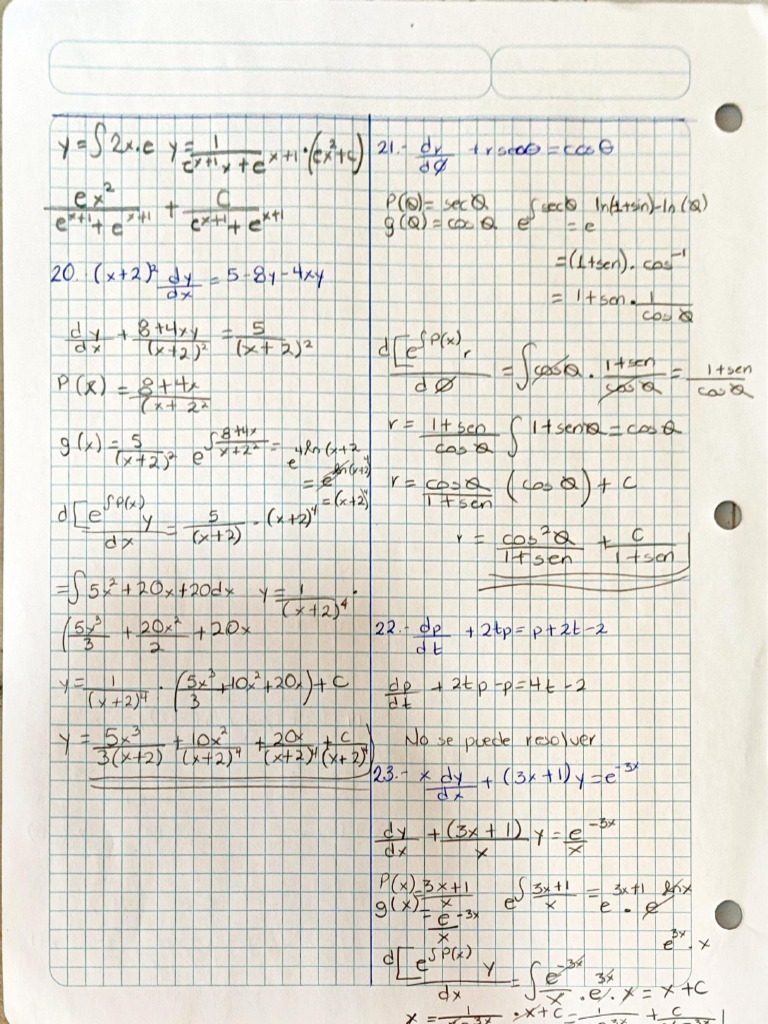 y = ∫ 2x·e y = 1/(e^x+1 x + e^x+1) · (ex² + c)
ex²/(e^x+1 + e^x+1) + c/(e^x+1 + e^x+1)
20. (x+2)² dy/dx = 5-8y-4xy
dy/dx + 8+4xy/(x+2)² = 5/(x+2)²
P(x) = 8+4x/(x+2²
g(x) = 5/(x+2)² e^∫8+4x/x+2² = e^4ln(x+2
= e^ln(x+2)^4
= (x+2)^4
d[e^∫P(x) y/dx = 5/(x+2) · (x+2)^4
= ∫ 5x² + 20x + 20dx y = 1/(x+2)^4 ·
(5x³/3 + 20x²/2 + 20x
y = 1/(x+2)^4 · (5x³/3 + 10x² + 20x) + C
y = 5x³/3(x+2) + 10x²/(x+2)^4 + 20x/(x+2)^4 + c/(x+2)^4
21.- dr/dØ + r secθ = cosθ
P(θ) = secθ
g(θ) = cosθ e^∫secθ = e^ln(1+sin)-ln(θ)
= (1+sen) · cos^-1
= 1+sen · 1/cosθ
d[e^∫P(x) r/dØ = ∫cosθ · 1+sen/cosθ = 1+sen/cosθ
r = 1+sen/cosθ ∫ 1+senθ = cosθ
r = cosθ/1+sen (cosθ) + c
r = cos²θ/1+sen + c/1+sen
22.- dp/dt + 2tp = p+2t-2
dp/dt + 2tp-p = 4t-2
No se puede resolver
23.- x dy/dx + (3x+1)y = e^-3x
dy/dx + (3x+1)/x y = e^-3x/x
P(x) = 3x+1/x
g(x) = e^-3x/x e^∫3x+1/x = e^3x+1 · e^lnx
e^3x · x
d[e^∫P(x) y/dx = ∫ e^-3x/x · e^3x · x = x+c